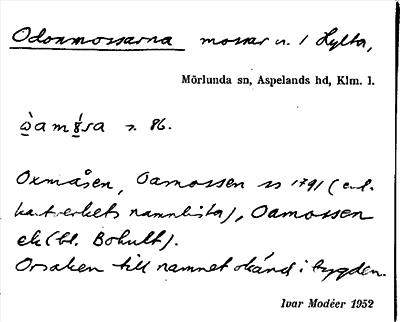 Odonmossarna mossar n. i Hylta,
Mörlunda sn, Aspelands hd, Klm. l.
s. 86.
Oxmåsen, Oamossen ss 1791 (enl.
kartverkets namnlista), Oamossen
ek (bl. Bohult).
Orsaken till namnet okänd i bygden.
Ivar Modéer 1952